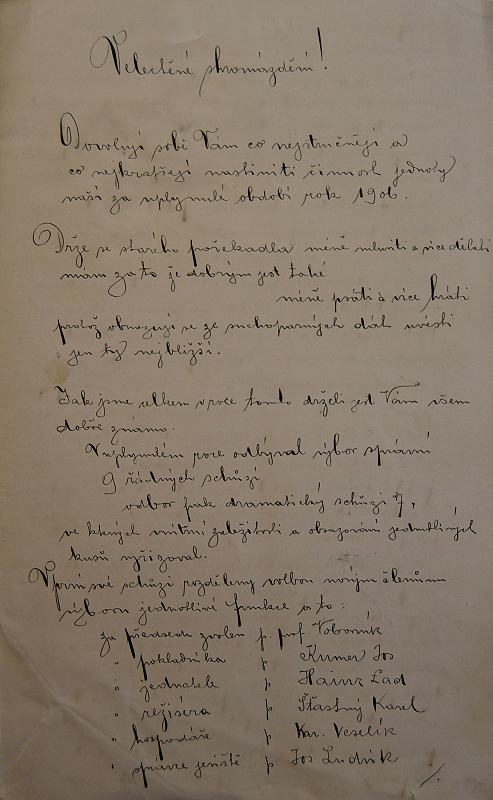 Velectěné shromáždění!
Dovoluji sobě Vám co nejstručněji a
co nejkratšeji nastíniti činnost jednoty
naší za uplynulé období rok 1906.
Drže se starého pořekadla méně mluviti a více dělati
mám za to že dobrým jest také
méně psáti a více hráti
pročež obmezuji se ze suchoparných dát uvésti
jen ty nejbližší.
Jak jsme celkem v roce tomto drželi jest Vám všem
dobře známo.
V uplynulém roce odbýval výbor správní
9 řádných schůzí
odbor pak dramatický schůzí 7,
ve kterých vnitřní záležitosti a obsazování jednotlivých
kusů vyřizoval.
V první své schůzi rozděleny volbou novým členům
výboru jednotlivé funkce a to:
za předsedu zvolen p. prof Voborník
" pokladníka p Kumer Jos
" jednatele p Hainz Lad
" režiséra p Šťastný Karel
" hospodáře p Kar. Veselík
" správce jeviště p Jos Ludvík